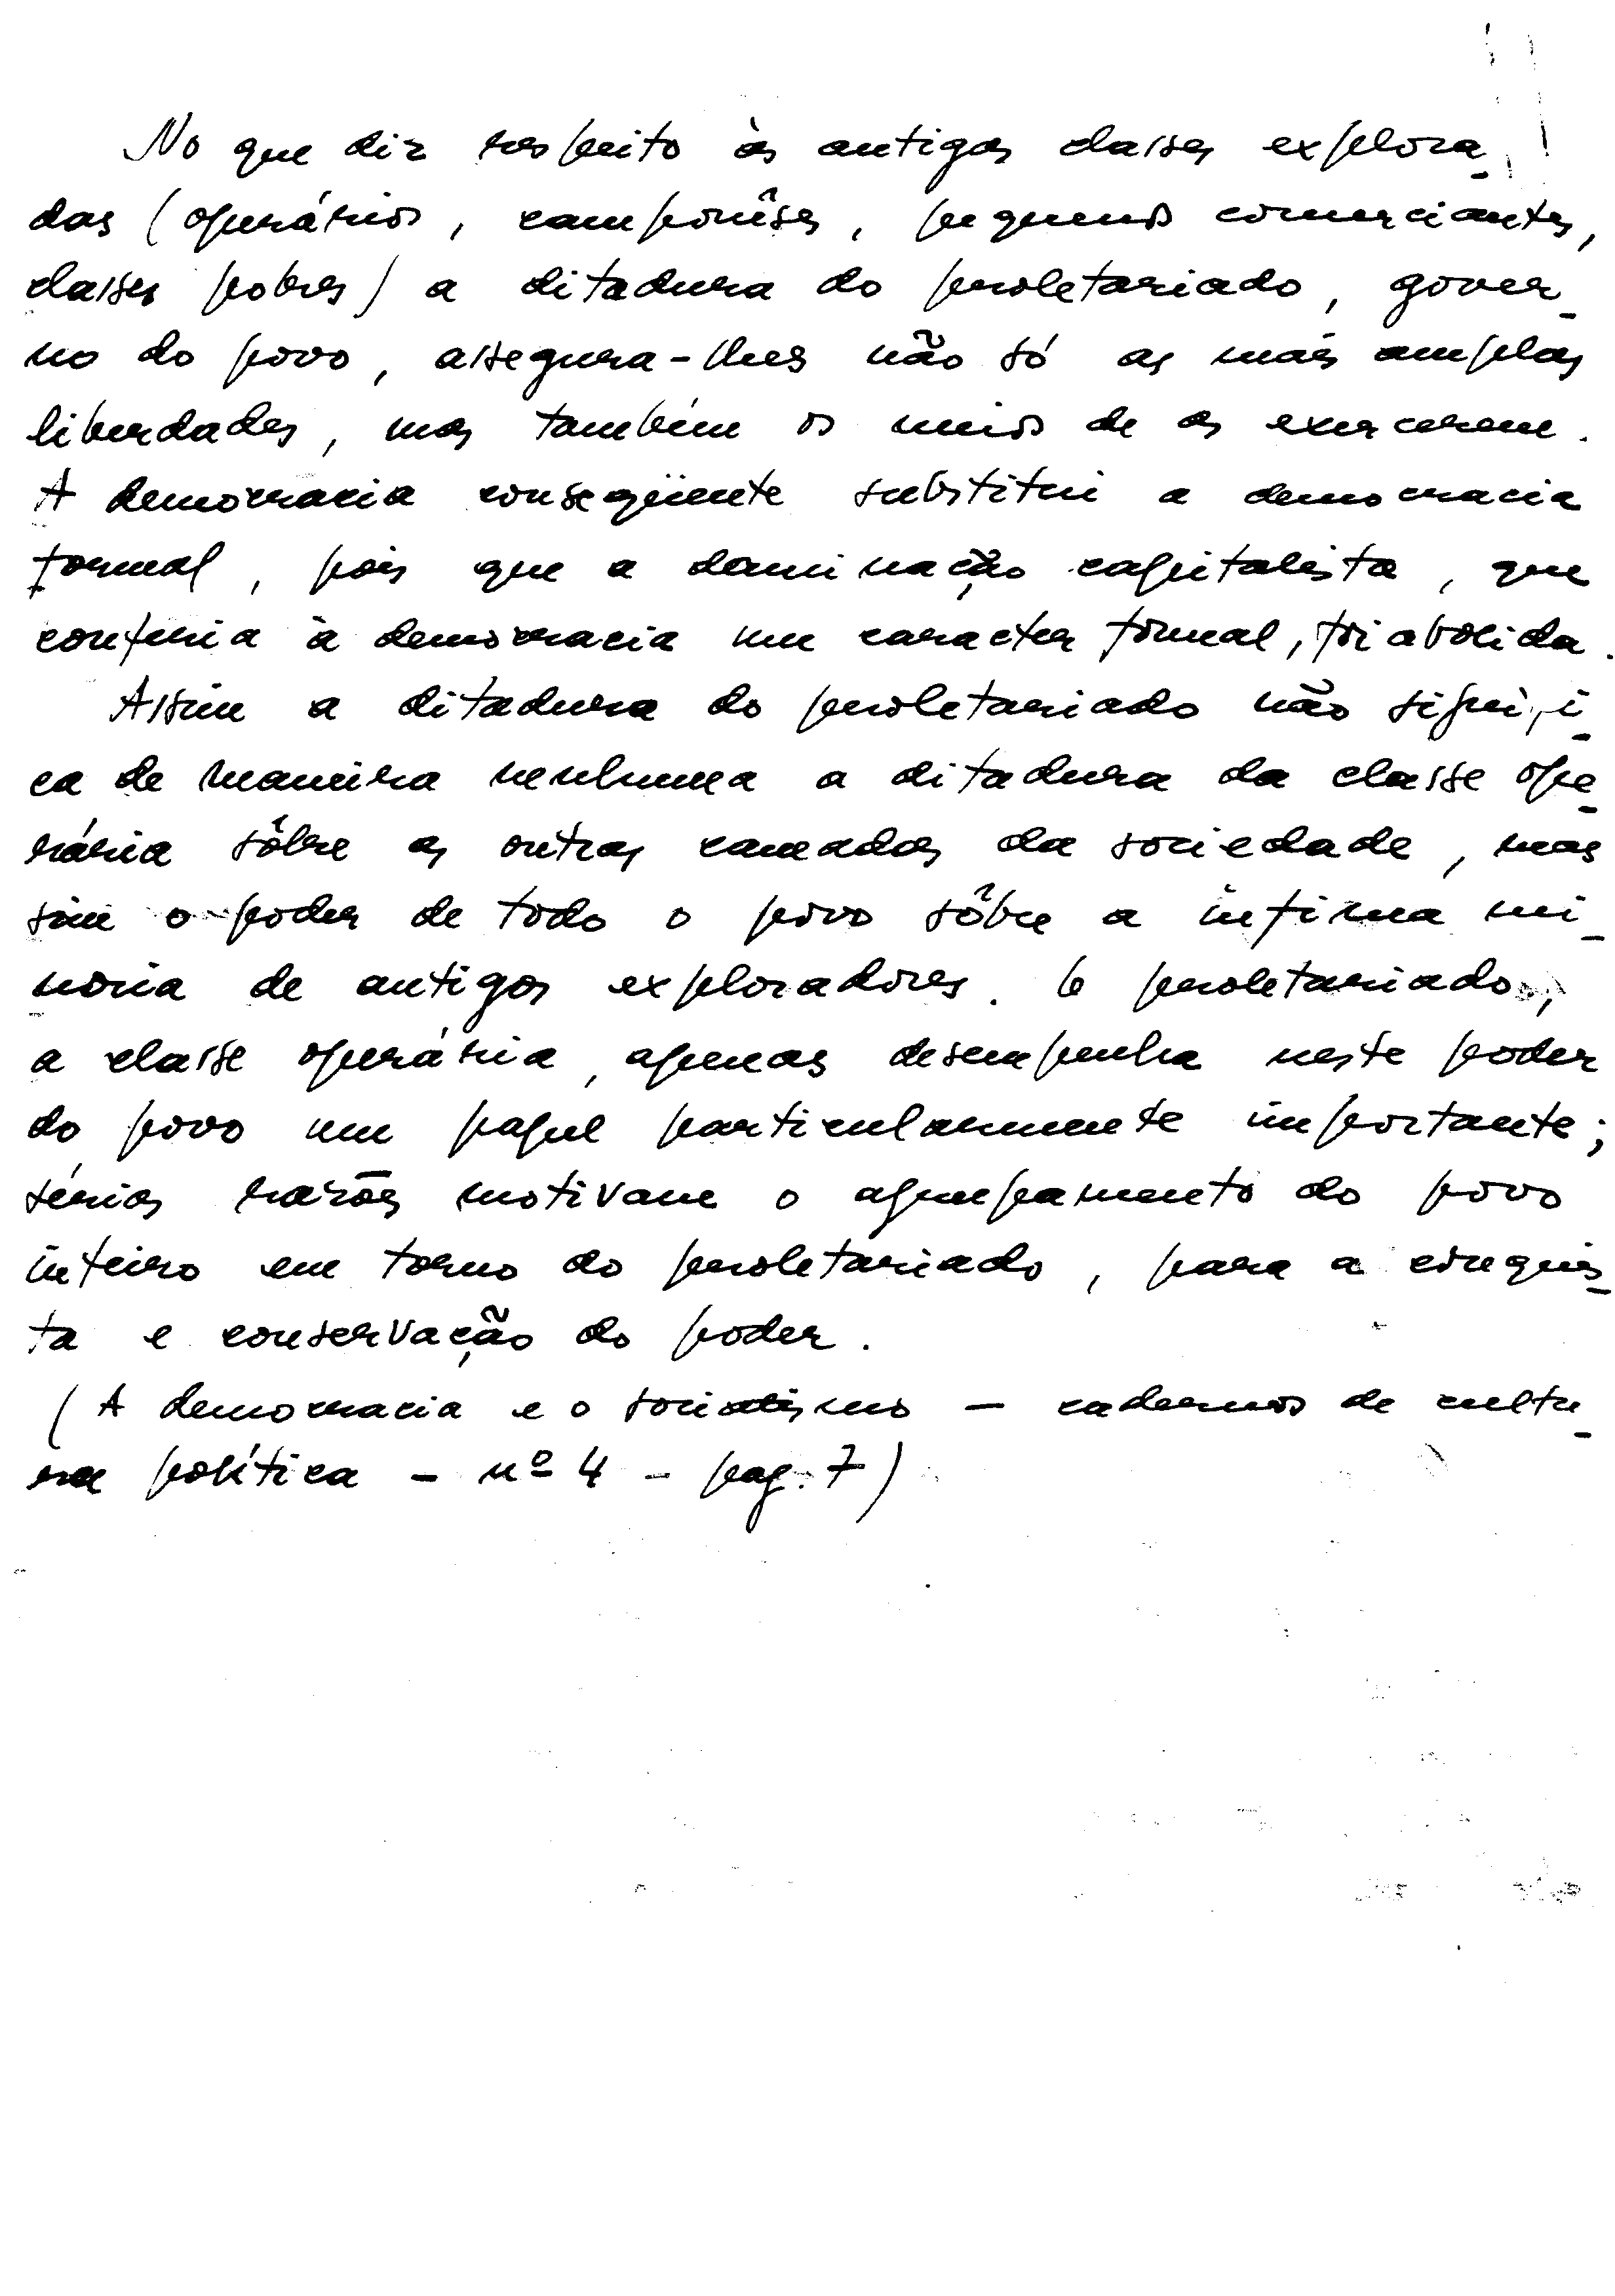 No que diz respeito às antigas classes explora_
das (operários, camponêses, pequenos comerciantes,
classes pobres) a ditadura do proletariado, gover_
no do povo, assegura-lhes não só as mais amplas
liberdades, mas também os meios de as exercerem.
A democracia conseqüente substitui a democracia
formal, pois que a dominação capitalista, que
conferia à democracia um caracter formal, foi abolida.
Assim a ditadura do proletariado não signifi_
ca de maneira nenhuma a ditadura da classe ope_
rária sôbre as outras camadas da sociedade, mas
sim o poder de todo o povo sôbre a ínfima mi_
noria de antigos exploradores. O proletariado,
a classe operária, apenas desempenha neste poder
do povo um papel particularmente importante;
sérias razões motivam o agrupamento do povo
inteiro em torno do proletariado, para a conquis_
ta e conservação do poder.
(A democracia e o socialismo – cadernos de cultu_
ra política – nº 4 – pag. 7)